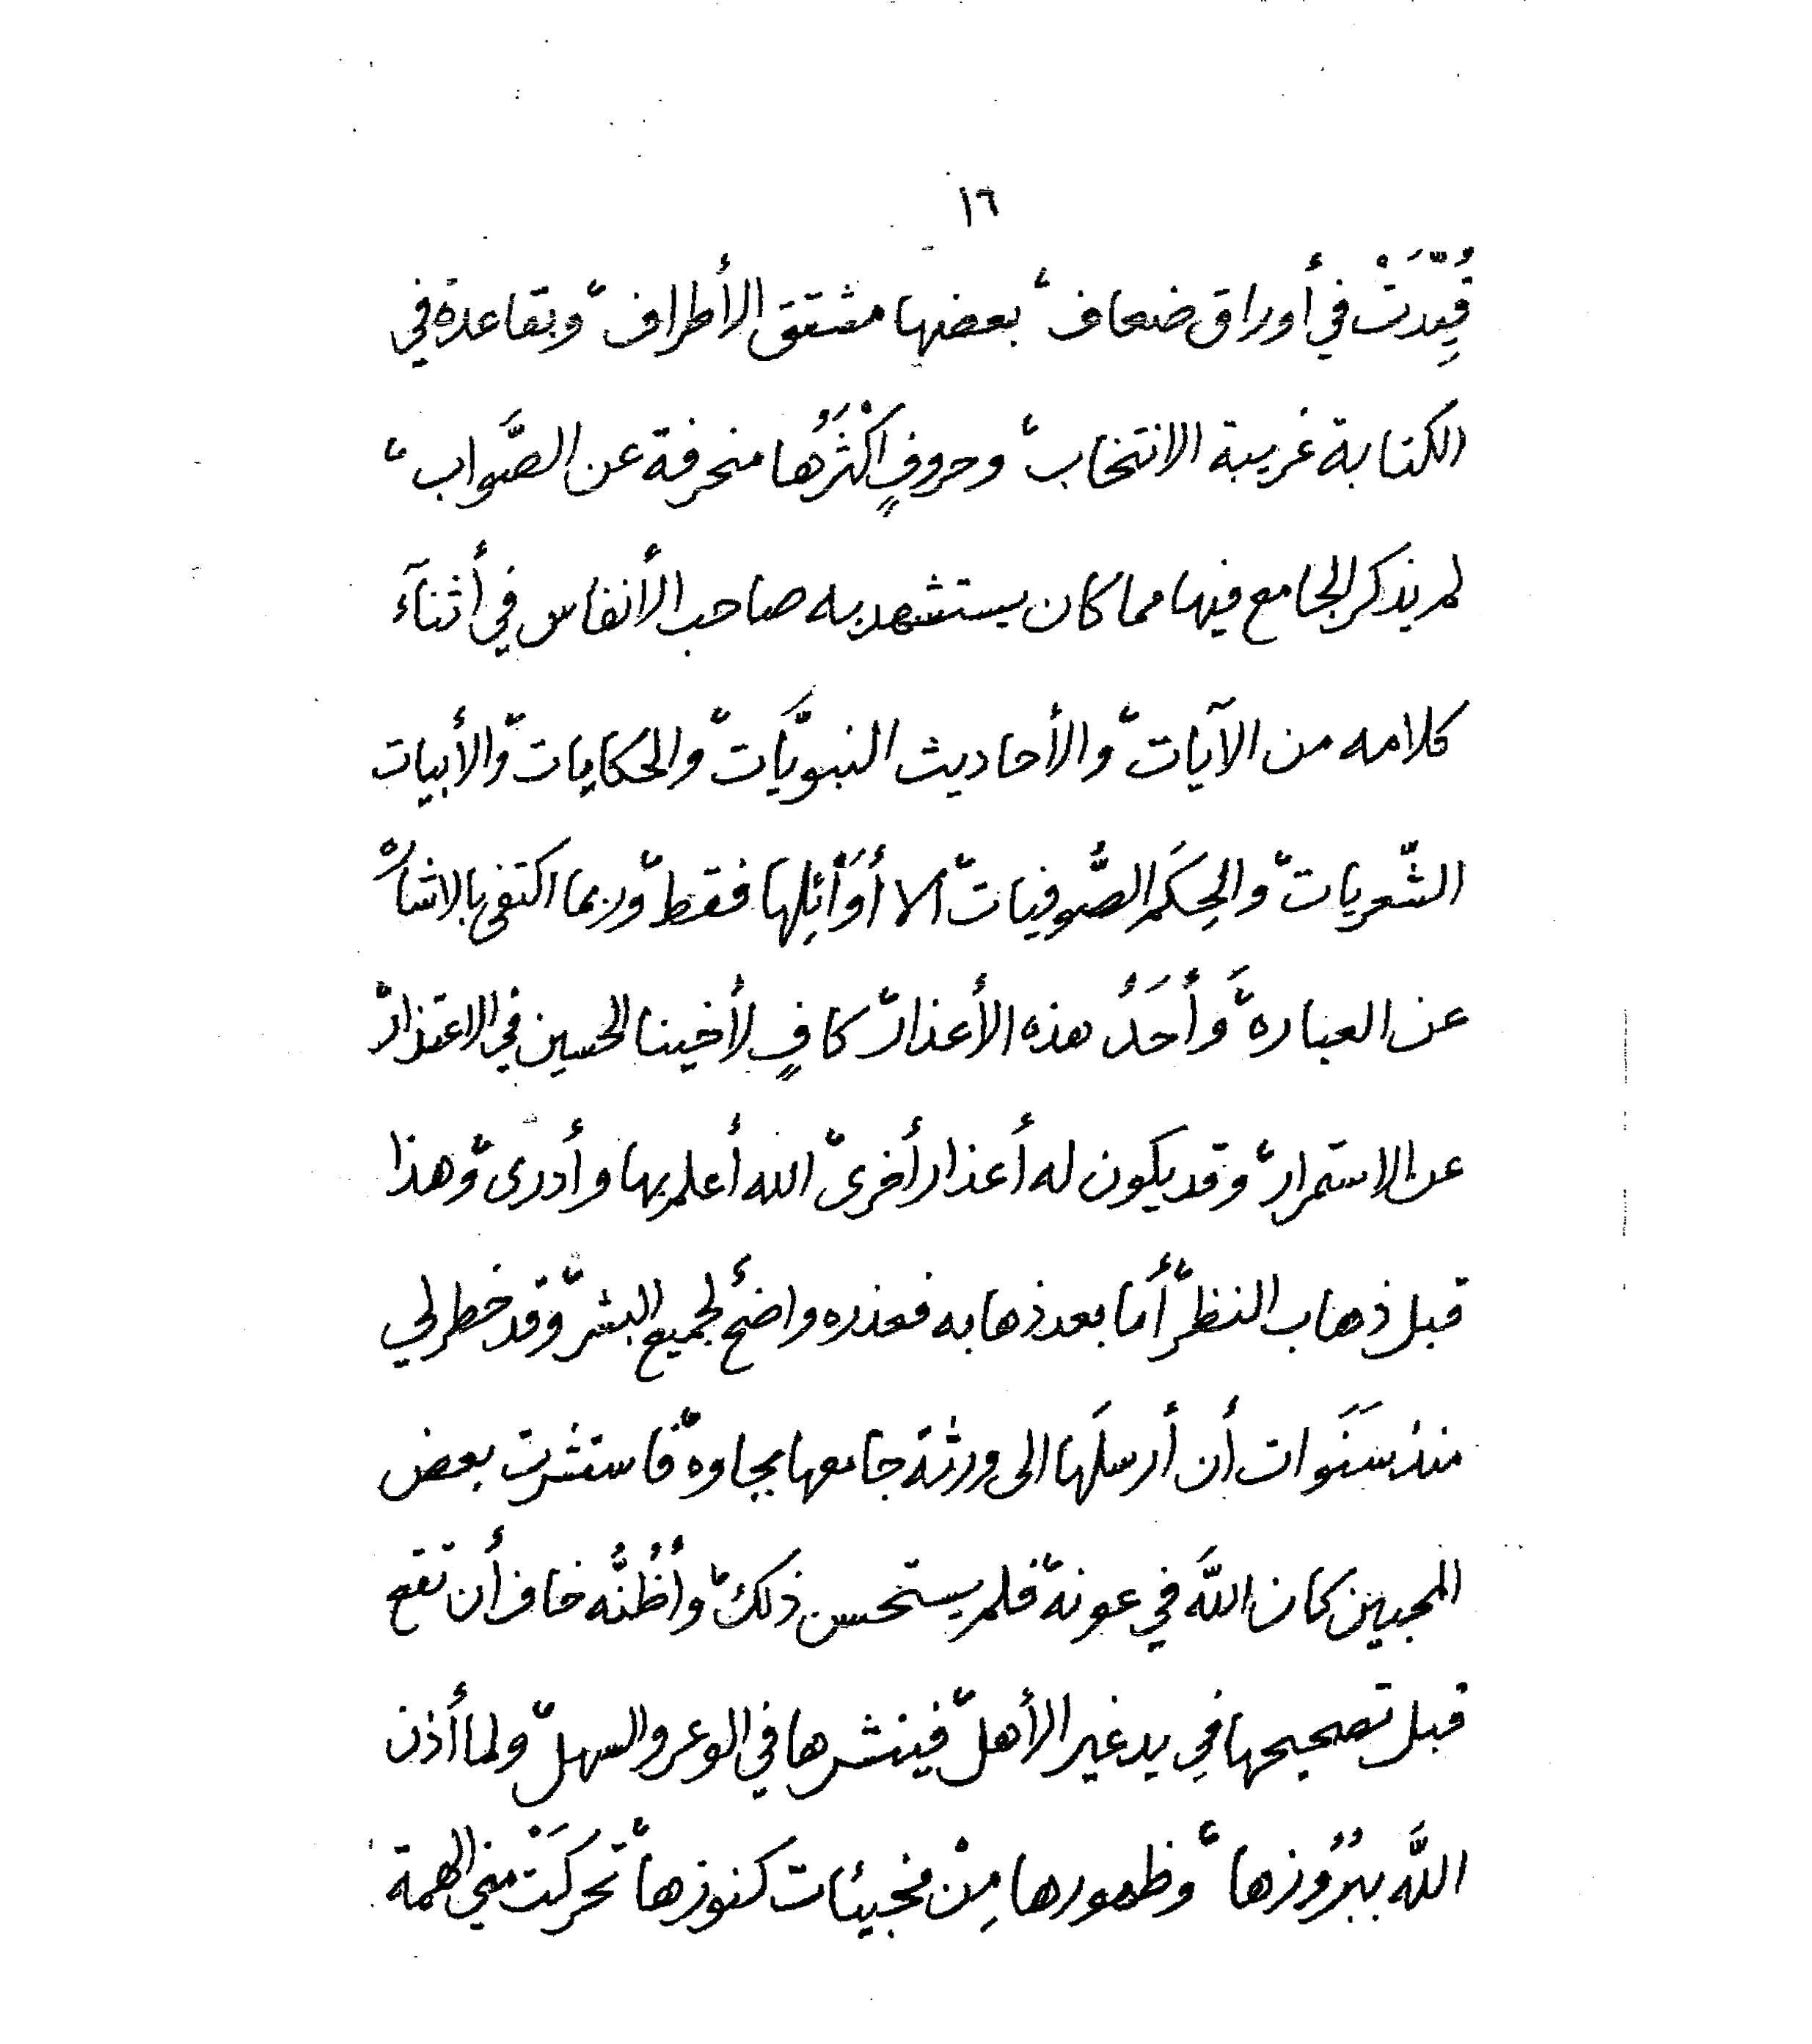 ١٦
قُيِّدَتْ في أوراق ضعاف، بعضها مشقق الأطراف، وبقاعدة في
الكتابة غريبة الانتخاب، وحروفٍ اكْثَرُها منحرفة عن الصَّواب،
لم يذكر الجامع فيها مما كان يستشهد به صاحب الأنفاس في أثنآء
كلامه من الآيات، والأحاديث النبويَّات، والحكايات، والأبيات
الشّعريات، والحِكَم الصُّوفيات، الا أوَآئِلها فقط، وربما اكتفى بالاشارة
عن العبارة، وَأحَدُ هذه الأعذار، كافٍ لأخينا الحسين في الاعتذار،
عن الاستمرار، وقد يكون له أعذار أخرى، الله أعلم بها وأدرى، وهذا
قبل ذهاب النظر، أما بعد ذهابه فعذره واضحٌ لجميع البشر، وقد خطر لي
منذ سَنَوات أن أرسلَها الى ورثة جامعها بجاوه، فاستشرت بعض
المحبين كان اللَّه في عونه، فلم يستحسن ذلك، وأظُنُّه خاف أن تقع
قبل تصحيحها في يد غير الأهل، فينشرها في الوعر والسهل، ولما أذن
اللَّه ببُرُوزها، وظهورها مِنْ مخبيئات كنوزها، تحركَتْ مني الهمة